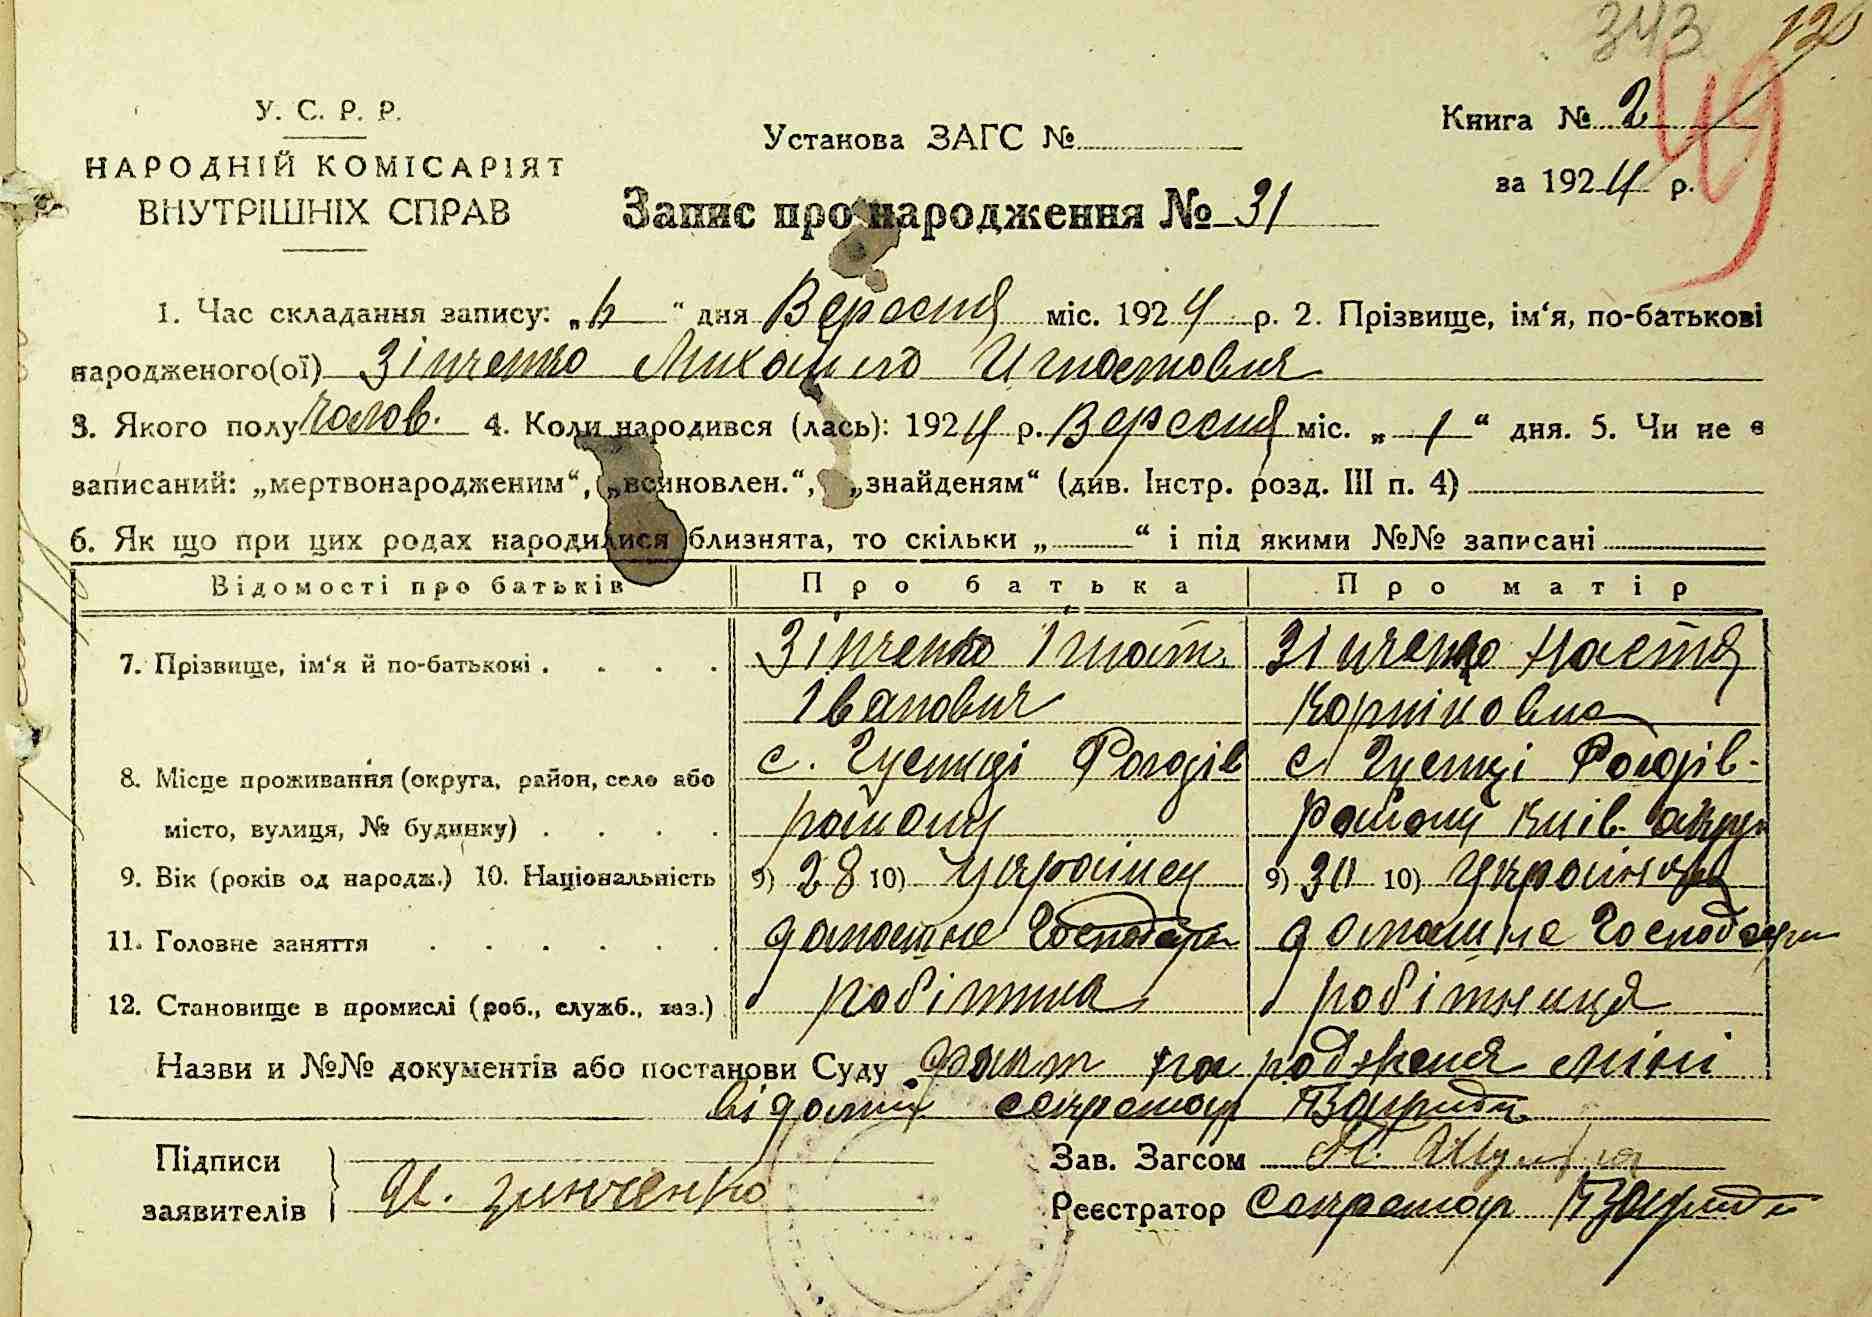 343 120
49
У. С. Р. Р.
НАРОДНІЙ КОМІСАРІЯТ
ВНУТРІШНІХ СПРАВ
Установа ЗАГС №
Книга № 2
за 1924 р.
Запис про народження № 31
1. Час складання запису: „ “ дня Вересня міс. 1924 р. 2. Прізвище, ім‘я, по-батькові
народженого(ої) Зінченко Михайло Игнатович
3. Якого полу чолов. 4. Коли народився (лась): 1924 р. Вересня міс. „ 1 “ дня. 5. Чи не є
записаний: „мертвонародженим“, „всиновлен.“, „знайденям“ (див. Інстр. розд. III п. 4)
6. Як що при цих родах народилися близнята, то скільки „ “ і під якими №№ записані
Відомості про батьків Про батька Про матір
7. Прізвище, ім‘я й по-батькові . . . . Зінченко Ігнат Зінченко Настя
Іванович Корніковна
8. Місце проживання (округа, район, село або с. Гусинці Рогозів с Гусинці Рогозів-
місто, вулиця, № будинку) . . . . району району Київ. округи
9. Вік (років од народж.) 10. Національність 9) 28 10) Українец 9) 30 10) Українка
11. Головне заняття . . . . . . домашне Господар. домашне Господарст
12. Становище в промислі (роб., служб., хаз.) робітник робітниця
Назви и №№ документів або постанови Суду факт народженя міні
відомий секретар
Підписи
заявителів И. Зинченко
Зав. Загсом
Реєстратор Секретар